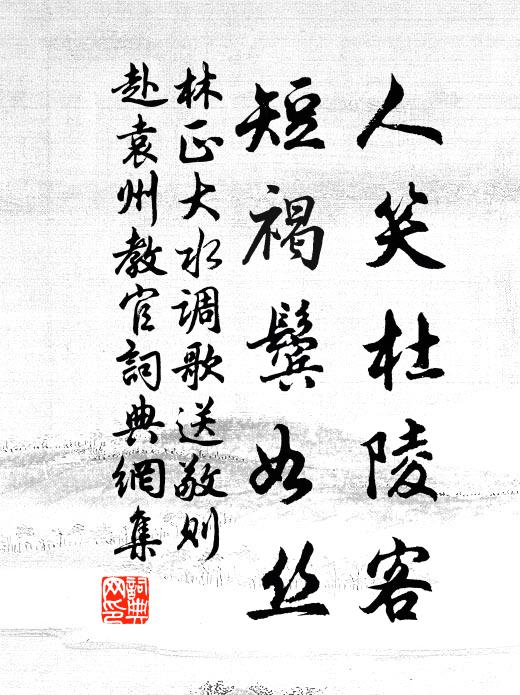 人笑杜陵客
短褐鬓如丝
林正大水调歌送敬则
赴袁州教官詞典網集
詞典
网印